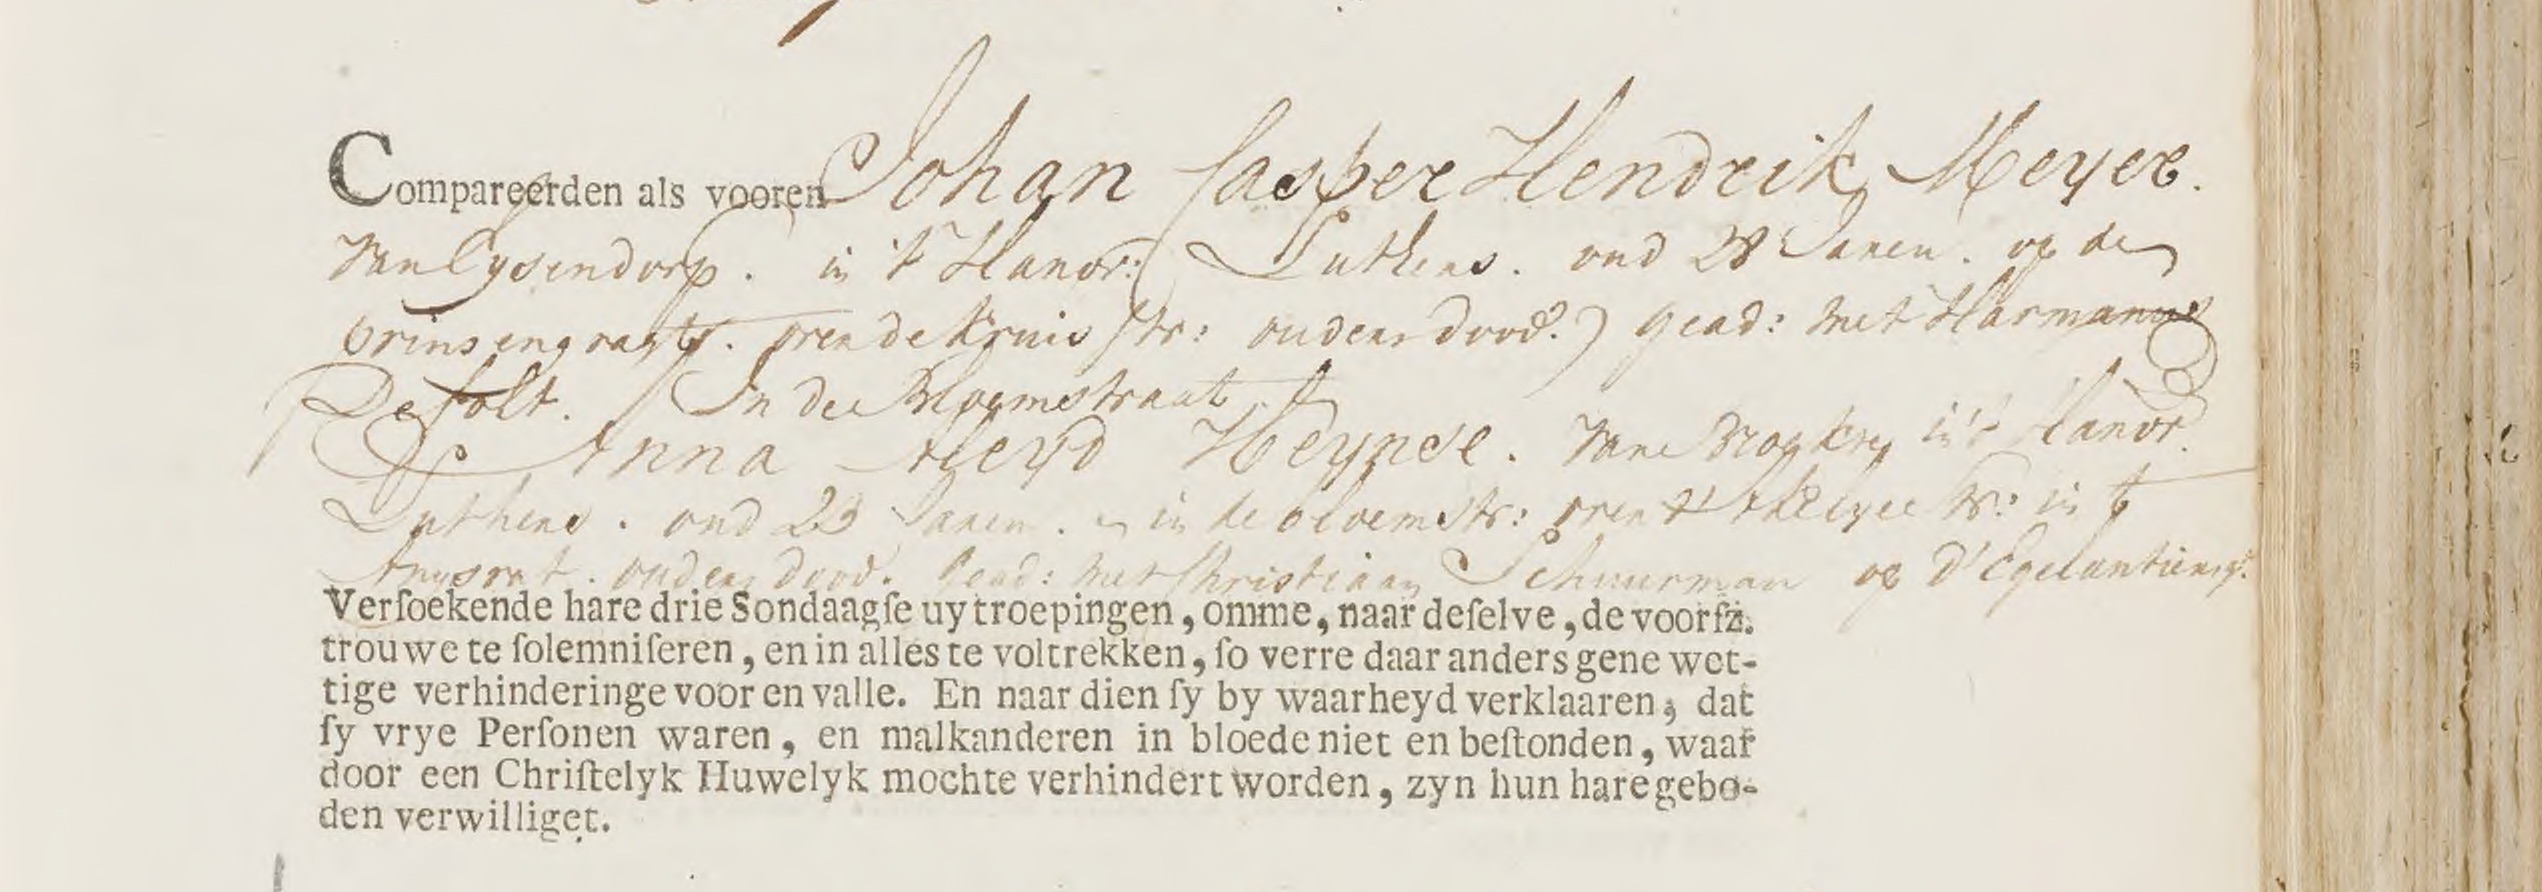 Compareerden als vooren Johan Casper Hendrik Meyer.
Van Eysendorp. in 't Hanor: Luthers. oud 28 Jaren. op de
prinsengragt. over de Kruis str: ouders dood.) gead: met Harmanus
Defolt. In de Bloemstraat
& Anna Aleyd Heynse. Van in 't Hanor.
Luthers. oud 23 Jaren. in de bloemstr: over in t
ouders dood. Gead: met Christiaan Schuurman op d'Egelantiersg:
Verſoekende hare drie Sondaagſe uytroepingen, omme, naar deſelve, de voorſz.
trouwe te ſolemniſeren, en in alles te voltrekken, ſo verre daar anders gene wet-
tige verhinderinge voor en valle. En naar dien ſy by waarheyd verklaaren, dat
ſy vrye Perſonen waren, en malkanderen in bloede niet en beſtonden, waar
door een Chriſtelyk Huwelyk mochte verhindert worden, zyn hun hare gebo-
den verwilliget.